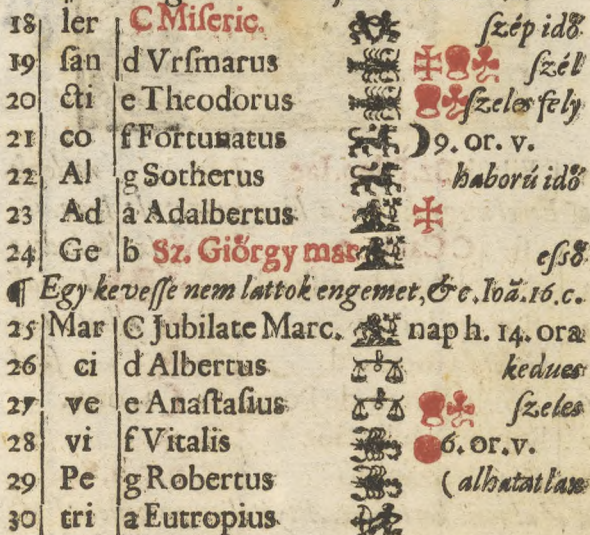 18 ler C Miſeric. ſzép idő
19 ſan d Vrſmarus ſzél
20 cti e Theodorus ſzeles fely
21 co f Fortunatus 9. or. v.
22 Al g Sotherus haború idő
23 Ad a Adalbertus
24 Ge b Sz. Giőrgy mar eſső
¶ Egy keveſſe nem lattok engemet, &c. Ioã. 16. c.
25 Mar C Jubilate Marc. nap h. 14. ora
26 ci d Albertus kedues
27 ve e Anaſtaſius ſzeles
28 vi f Vitalis 6. or. v.
29 Pe g Robertus (alhatatlan
30 tri a Eutropius